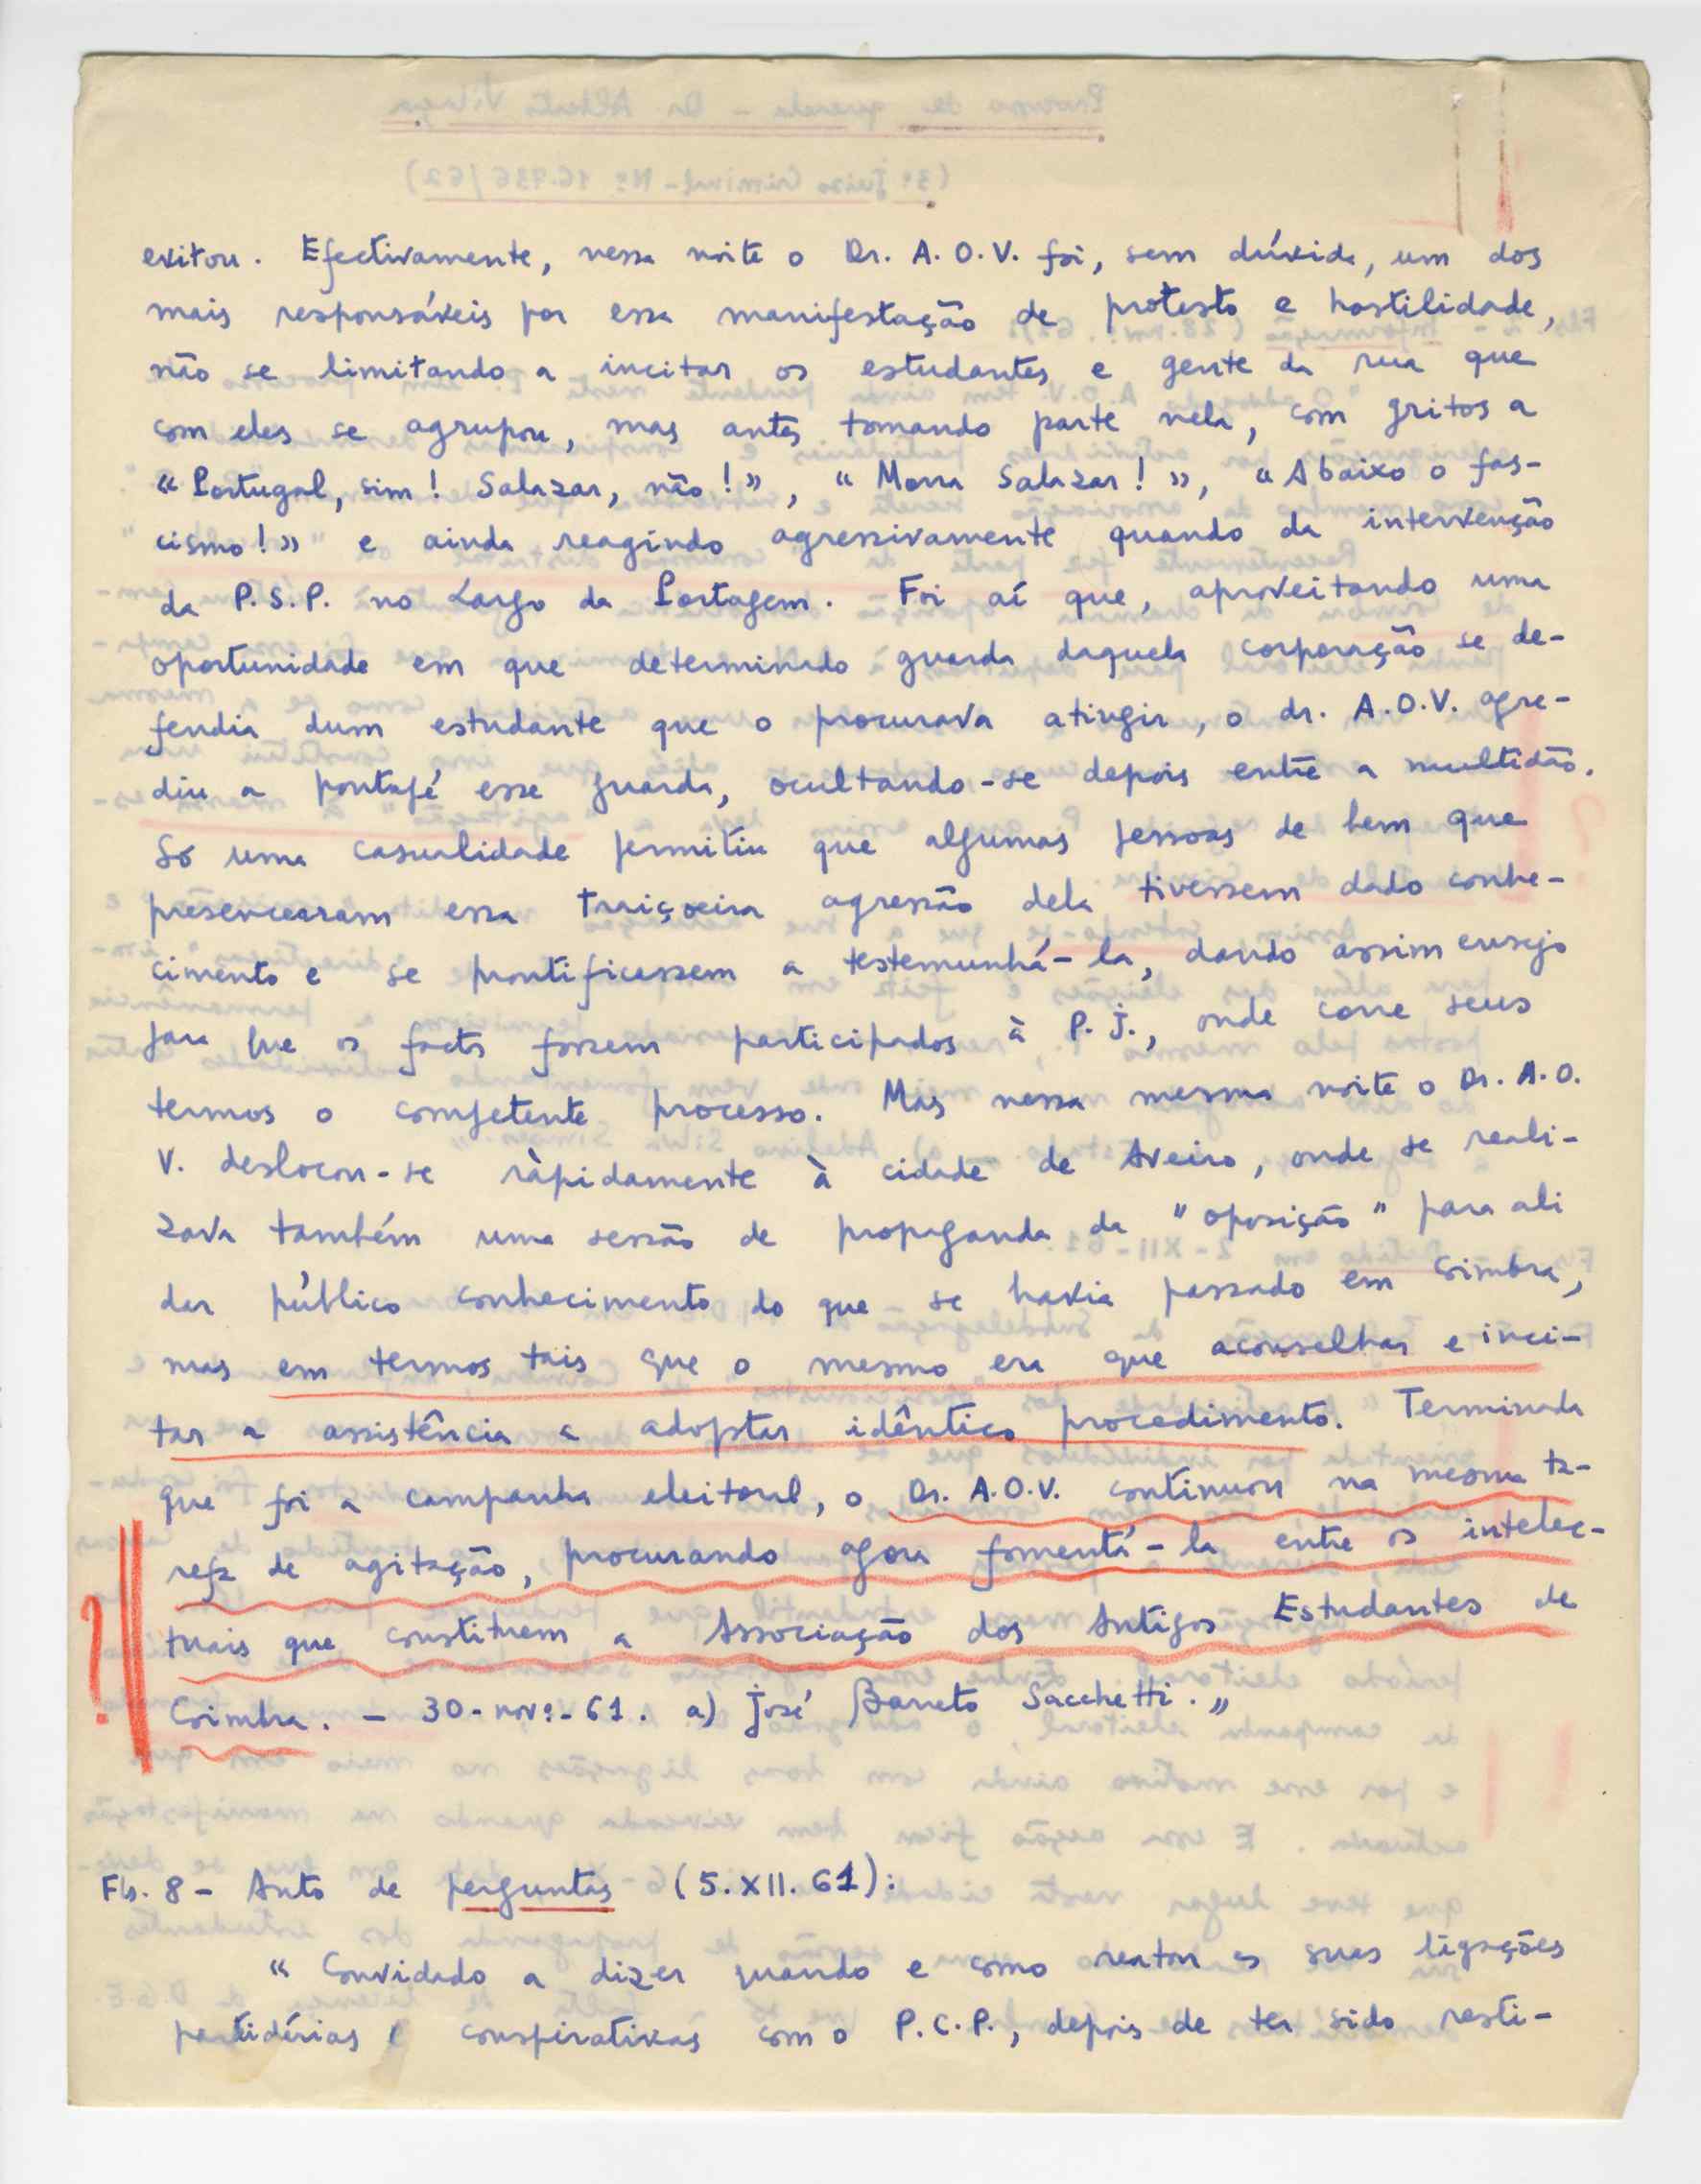 evitou. Efectivamente, nessa noite o Dr. A. O. V. foi, sem dúvida, um dos
mais responsáveis por essa manifestação de protesto e hostilidade,
não se limitando a incitar os estudantes e gente da rua que
com eles se agrupou, mas antes tomando parte nela, com gritos a
« Portugal, sim! Salazar, não! », « Morra Salazar! », « Abaixo o fas-
cismo! » e ainda reagindo agressivamente quando da intervenção
da P. S. P. no Largo da Portagem. Foi aí que, aproveitando uma
oportunidade em que determinado guarda daquela corporação se de-
fendia dum estudante que o procurava atingir, o dr. A. O. V. agre-
diu a pontapé esse guarda, ocultando-se depois entre a multidão.
Só uma casualidade permitiu que algumas pessoas de bem que
presencearam essa traiçoeira agressão dela tivessem dado conhe-
cimento e se prontificassem a testemunhá-la, dando assim ensejo
para que os factos fossem participados à P. J., onde corre seus
termos o competente processo. Mas nessa mesma noite o Dr. A. O.
V. deslocou-se ràpidamente à cidade de Aveiro, onde se reali-
zava também uma sessão de propaganda da "oposição" para ali
dar público conhecimento do que se havia passado em Coimbra,
mas em termos tais que o mesmo era que aconselhar e inci-
tar a assistência a adoptar idêntico procedimento. Terminada
que foi a campanha eleitoral, o Dr. A. O. V. continuou na mesma ta-
refa de agitação, procurando agora fomentá-la entre os intelec-
tuais que constituem a Associação dos Antigos Estudantes de
Coimbra. – 30-nov.º-61. a) José Barreto Sacchetti. »
Fls. 8 – Auto de perguntas (5. XII. 61):
« Convidado a dizer quando e como reatou as suas ligações
partidárias e conspirativas com o P. C. P., depois de ter sido resti-